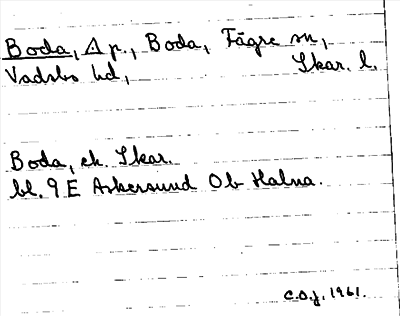 Boda, Ap., Boda, Fägre sn,
Vadsbo hd, Skar. l.
Boda, ek. Skar.
bl. 9 E Askersund Ob Halna.
C.O.J. 1961.